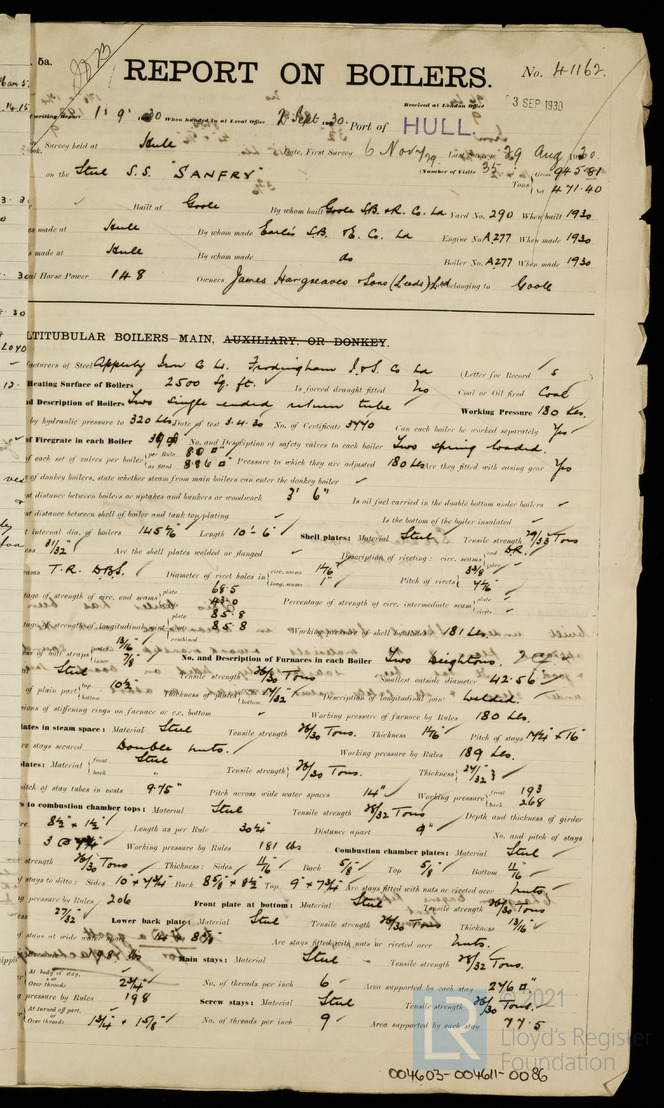 5a.
REPORT ON BOILERS.
No. 41162.
Received at London Office
3 SEP 1930
writing Report 1. 9. 1930 When handed in at Local Office 2 Sept 1930. Port of HULL.
Survey held at Hull Date, First Survey 6 Nov/29 Last Survey 29 Aug 1930.
(Number of Visits 35
on the Steel S.S. "SANFRY" Tons Gross 945.81
Net 471.40
Built at Goole By whom built Goole S.B. & R. Co. Ld Yard No. 290 When built 1930
made at Hull By whom made Earle's S.B. & E. Co. Ld Engine No. A277 When made 1930
made at Hull By whom made do Boiler No. A277 When made 1930
Horse Power 148 Owners James Hargreaves & Sons (Leeds) Ltd belonging to Goole
LTITUBULAR BOILERS MAIN, AUXILIARY, OR DONKEY.
facturers of Steel Appleby Iron Co Ld. Frodingham I. & S. Co Ld (Letter for Record S
Heating Surface of Boilers 2500 Sq. ft. Is forced draught fitted No Coal or Oil fired Coal
d Description of Boilers Two single ended return tube Working Pressure 180 Lbs.
by hydraulic pressure to 320 Lbs Date of test 3.4.30 No. of Certificate 3770 Can each boiler be worked separately Yes
of Firegrate in each Boiler No. and Description of safety valves to each boiler Two spring loaded.
of each set of valves per boiler per Rule
as fitted 8.86 Pressure to which they are adjusted 180 Lbs Are they fitted with easing gear Yes
of donkey boilers, state whether steam from main boilers can enter the donkey boiler
st distance between boilers or uptakes and bunkers or woodwork 3' 6" Is oil fuel carried in the double bottom under boilers
st distance between shell of boiler and tank top plating Is the bottom of the boiler insulated
internal dia. of boilers Length 10'-6" Shell plates: Material Steel Tensile strength 29/33 Tons
31/32 Are the shell plates welded or flanged Description of riveting: circ. seams end D.R.
T.R. D.B.S. Diameter of rivet holes in circ. seams 1 1/16
long. seams 1" Pitch of rivets 3 3/8
tage of strength of circ. end seams plate 68.5
rivets 43.0 Percentage of strength of circ. intermediate seam plate
rivets
tage of strength of longitudinal joint plate 85.8
rivets 85.8
combined Working pressure of shell by Rules 181 Lbs.
of butt straps outer 13/16
inner 7/8 No. and Description of Furnaces in each Boiler Two Deightons.
Steel Tensile strength 26/30 Tons Smallest outside diameter 42.56"
of plain part top
bottom Thickness of plates crown
bottom 17/32 Description of longitudinal joint Welded.
sions of stiffening rings on furnace or c.c. bottom Working pressure of furnace by Rules 180 Lbs.
lates in steam space: Material Steel Tensile strength 26/30 Tons. Thickness 1 1/16 Pitch of stays 17 1/4 x 16
stays secured Double nuts. Working pressure by Rules 189 Lbs.
lates: Material front Steel
back " Tensile strength 26/30 Tons. Thickness 27/32
itch of stay tubes in nests 9.75" Pitch across wide water spaces 14" Working pressure front 193
back 268
s to combustion chamber tops: Material Steel Tensile strength 28/32 Tons Depth and thickness of girder
8 1/2 x 1 1/2 Length as per Rule 30 1/4 Distance apart 9" No. and pitch of stays
Working pressure by Rules 181 Lbs Combustion chamber plates: Material Steel
strength 26/30 Tons Thickness: Sides 11/16 Back 5/8 Top 5/8 Bottom 11/16
of stays to ditto: Sides 10 x 7 3/4 Back 8 5/8 x 8 1/2 Top 9 x 7 3/4 Are stays fitted with nuts or riveted over Nuts.
pressure by Rules 206 Front plate at bottom: Material Steel Tensile strength 26/30 Tons
27/32 Lower back plate: Material Steel Tensile strength 26/30 Tons Thickness 13/16
of stays at wide water Are stays fitted with nuts or riveted over Nuts.
198 Lbs Main stays: Material Steel Tensile strength 28/32 Tons.
At body of stay,
or
Over threads 2 3/4 No. of threads per inch 6 Area supported by each stay 276
pressure by Rules 198 Screw stays: Material Steel Tensile strength 26/30 Tons.
At turned off part,
or
Over threads 1 3/4 + 1 5/8 No. of threads per inch 9 Area supported by each stay 77.5
© 2021
LR Lloyd's Register
Foundation
004603-004611-0086